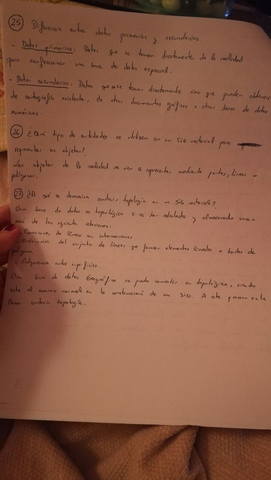 25 Diferencia entre datos primarios y secundarios
- Datos primarios: Datos que se toman directamente de la realidad
para confeccionar una base de datos espacial.
- Datos secundarios: Datos que se toman directamente sino que pueden obtenerse
de cartografía existente, de otros documentos gráficos u otras bases de datos
numéricas
26 ¿Qué tipo de entidades se utilizan en un SIG vectorial para
representar un objeto?
Los objetos de la realidad se van a representar mediante puntos, líneas o
polígonos.
27 ¿A qué se denomina contener topología en un SIG vectorial?
Una base de datos es topológica si se han calculado y almacenado una o
más de las siguientes relaciones:
- de líneas en intersecciones
- del conjunto de líneas que forman elementos lineales o bordes de
polígonos
- entre superficies
Una base de datos Geográfica se puede convertir en topológica, siendo
este el camino normal en la construcción de un SIG. A este proceso se le
llama construir topología.